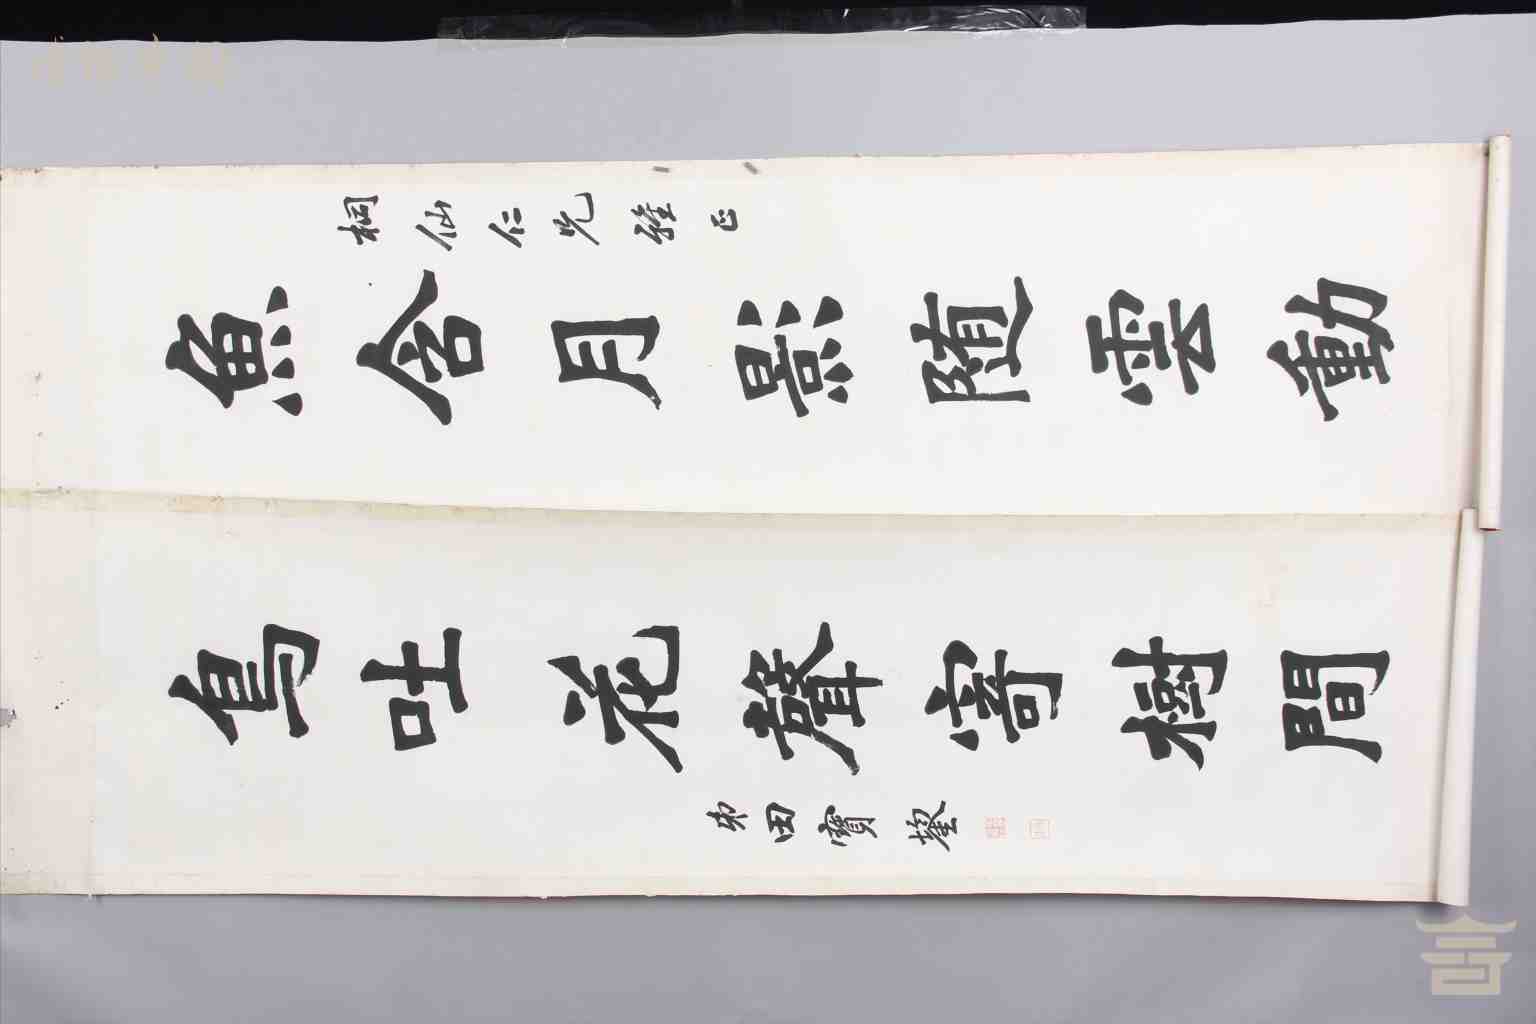 桐仙仁兄雅正
魚含月影随雲動
鳥吐花聲寄樹間
弟田寶鋆